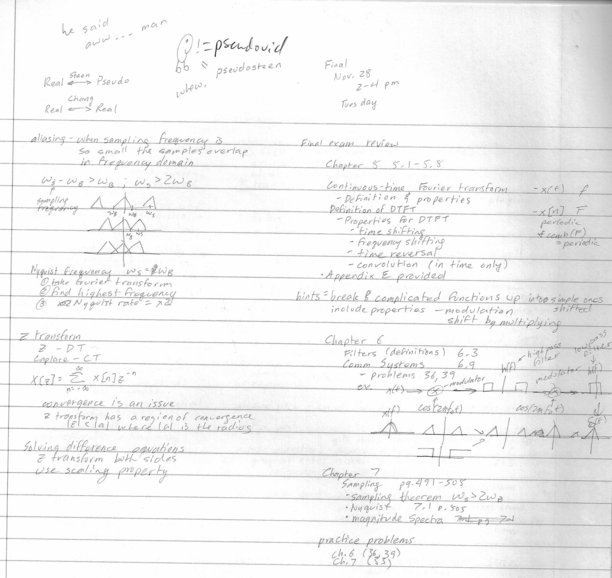 he said
aww... man
! = pseudovid
= pseudosteen
whew.
Real Steen Pseudo
Real Chang Real
Final
Nov. 28
2-4 pm
Tuesday
aliasing - when sampling frequency is
so small the samples overlap
in frequency domain
ws - wB > wB ; ws > 2wB
sampling
frequency
wB ws
wB ws
Nyquist Frequency ws = 2wB
① take fourier transform
② find highest frequency
③ Nyquist rate = x2
Z transform
Z - DT
Laplace - CT
X(z) = ∞ Σ n=-∞ x[n]z^-n
convergence is an issue
Z transform has a region of convergence
|z| < |a| where |a| is the radius
Solving difference equations
Z transform both sides
use scaling property
Final exam review
Chapter 5 5.1-5.8
Continuous-time Fourier transform - x(t) f
- Definition & properties
Definition of DTFT - x[n] F
- Properties for DTFT periodic
- time shifting & comb(F)
- frequency shifting = periodic
- time reversal
- convolution (in time only)
• Appendix E provided
hints = break & complicated functions up into simple ones
include properties - modulation shifted
shift by multiplying
Chapter 6
Filters (definitions) 6.3
Comm Systems 6.9
- problems 36, 39
ex. x(t) modulator H(f) high pass filter modulator H(f) low pass filter
cos(2πf₀t) cos(2πf₀t)
X(f)
Chapter 7
Sampling pg. 491-505
• sampling theorem ws > 2wB
• Nyquist 7.1 p. 505
• magnitude spectra
practice problems
Ch. 6 (36, 39)
Ch. 7 (35)